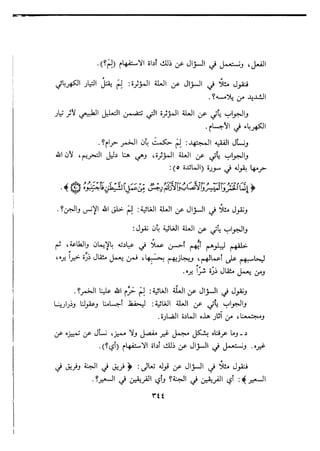 الفعل، ونستعمل في السؤال عن ذلك أداة الاستفهام (لِمَ؟).
فنقول مثلاً في السؤال عن العلة المؤثرة: لِمَ يقتلُ التيار الكهربائي
الشديد من يلامسه؟.
والجواب يأتي عن العلة المؤثرة التي تتضمن التعليل الطبيعي لأثر تيار
الكهرباء في الأجسام.
ونسأل الفقيه المجتهد: لِمَ حكمت بأن الخمر حرام؟.
والجواب يأتي عن العلة المؤثرة، وهي هنا دليل التحريم، لأن الله
حرمها بقوله في سورة (المائدة) ٥:
﴿ إِنَّمَا الْخَمْرُ وَالْمَيْسِرُ وَالْأَنصَابُ وَالْأَزْلَامُ رِجْسٌ مِنْ عَمَلِ الشَّيْطَانِ فَاجْتَنِبُوهُ ﴾.
ونقول مثلاً في السؤال عن العلة الغائية: لِمَ خلق الله الإنس والجن؟.
والجواب يأتي عن العلة الغائية بأن نقول:
خلقهم ليبلوهم أيهم أحسن عملاً في عبادته بالإيمان والطاعة، ثم
ليحاسبهم على أعمالهم، ويجازيهم بحسبها، فمن يعمل مثقال ذرة خيراً يره،
ومن يعمل مثقال ذرة شراً يره.
ونقول في السؤال عن العلة الغائية: لِمَ حرّم الله علينا الخمر؟.
والجواب يأتي عن العلة الغائية: ليحفظ أجسامنا وعقولنا وديارنا
ومجتمعنا، من آثار هذه المادة الضارة.
د - وما عرفناه بشكل مجمل غير مفصل ولا مميز، نسأل عن تمييزه عن
غيره. ونستعمل في السؤال عن ذلك أداة الاستفهام (أي؟).
فنقول مثلاً في السؤال عن قوله تعالى: ﴿ فريق في الجنة وفريق في
السعير ﴾: أي الفريقين في الجنة؟ وأي الفريقين في السعير؟.
٣٤٤